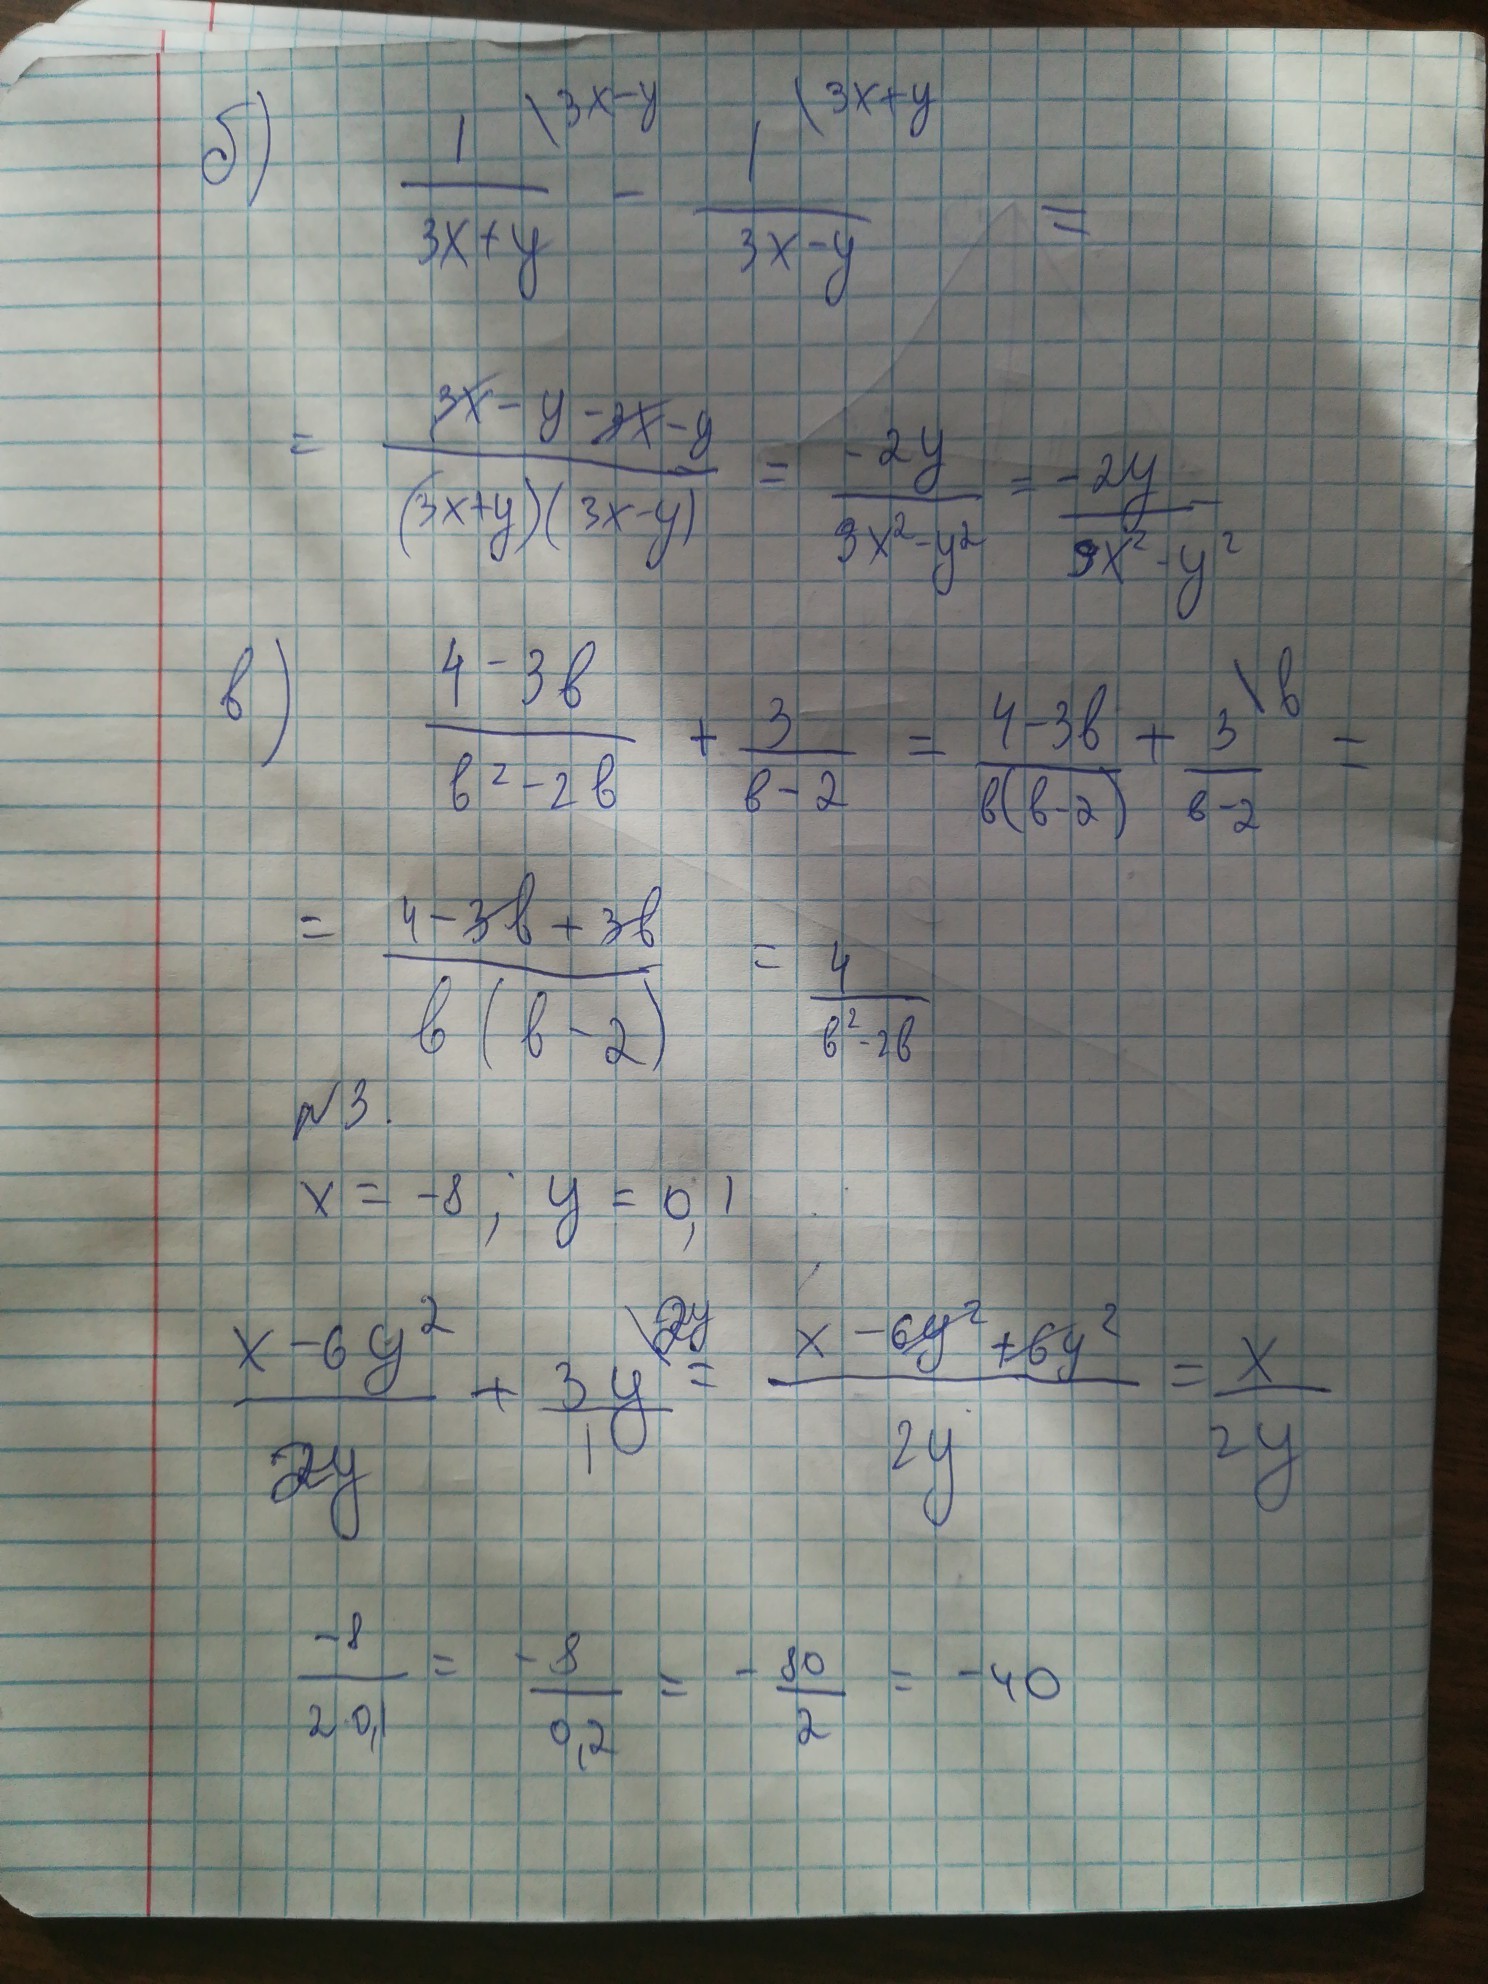 б) 1/(3x+y) \3x-y - 1/(3x-y) \3x+y =
= (3x-y-3x-y)/((3x+y)(3x-y)) = -2y/(9x²-y²) = -2y/(9x²-y²)
в) (4-3в)/(в²-2в) + 3/(в-2) = (4-3в)/(в(в-2)) + 3/(в-2) \в =
= (4-3в+3в)/(в(в-2)) = 4/(в²-2в)
№3.
x = -8; y = 0,1
(x-6y²)/2y + 3y/1 \2y = (x-6y²+6y²)/2y = x/2y
-8/(2·0,1) = -8/0,2 = -80/2 = -40